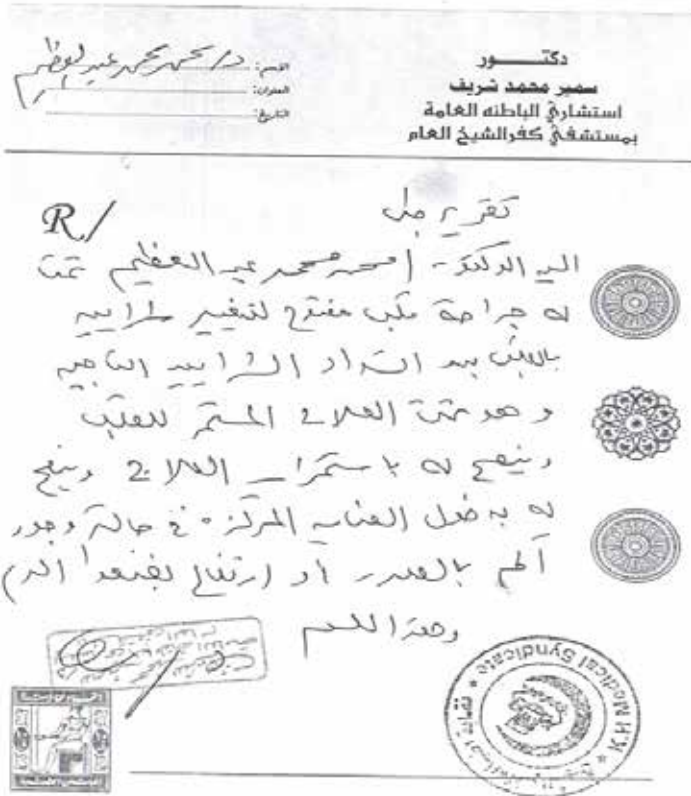 دكتـــور
سمير محمد شريف
استشاري الباطنه العامة
بمستشفي كفرالشيخ العام
الاسم: د/ محمد محمد عبد العظيم
العنوان:
التاريخ:
R/
تقرير طبى
السيد الدكتور / محمد محمد عبد العظيم تمت
له جراحة قلب مفتوح لتغيير شرايين
بالقلب بعد انسداد الشرايين التاجيه
وهو تحت العلاج المستمر للقلب
وينصح له باستمرار العلاج وينصح
له بدخول العنايه المركزه فى حالة وجود
ألم بالصدر أو ارتفاع بضغط الدم
وهذا للعلم
K.H Medical Syndicate